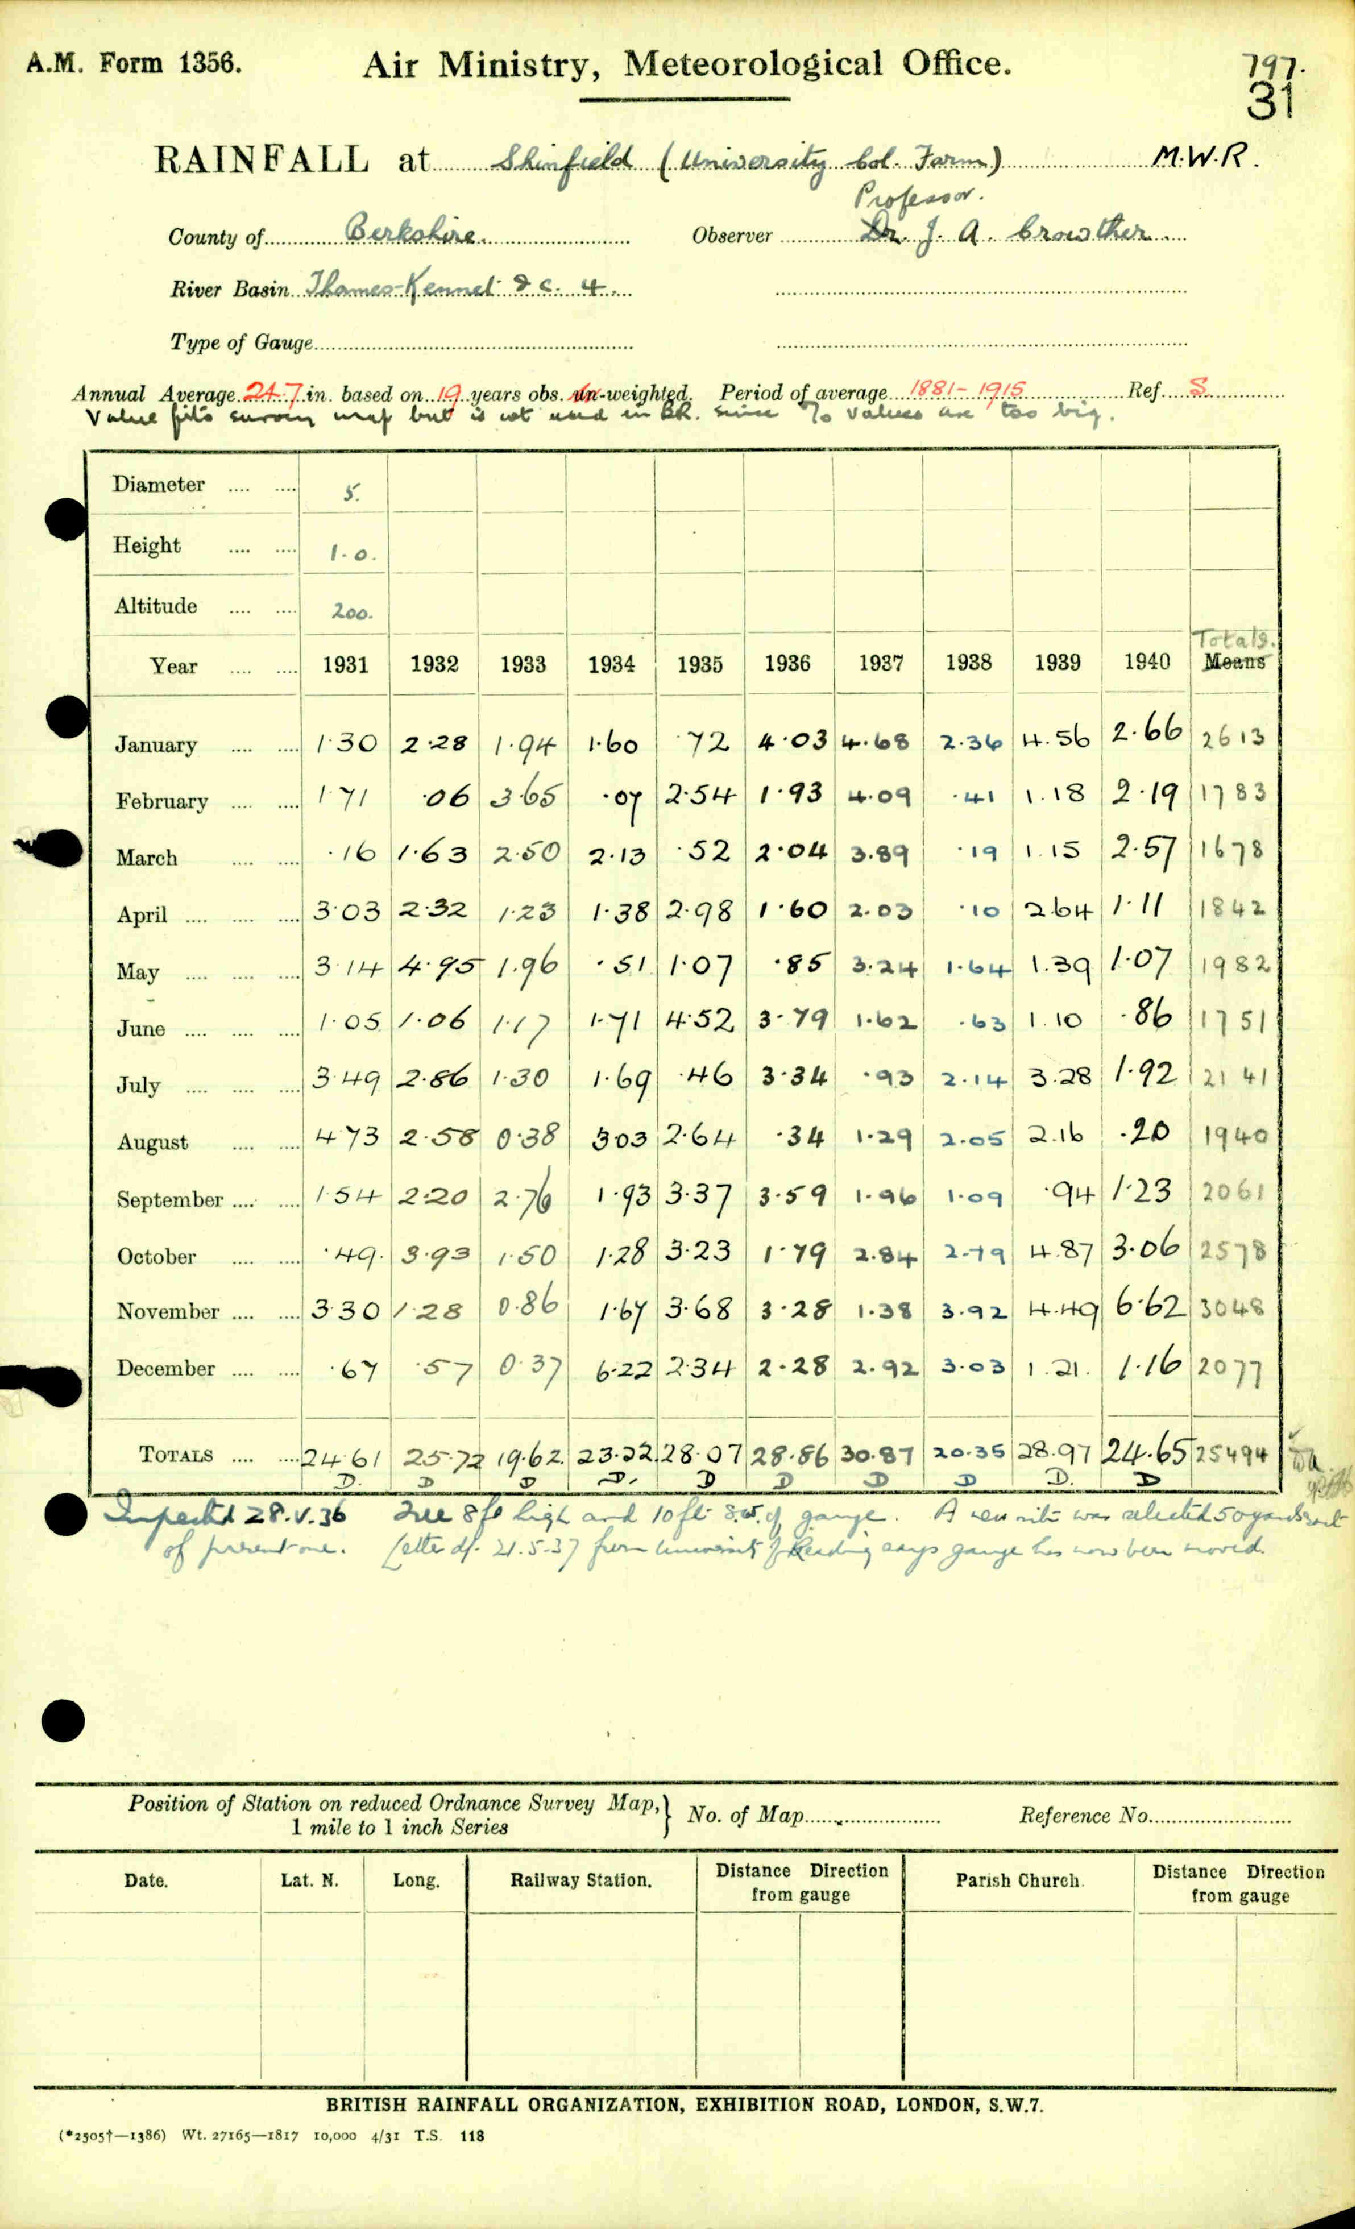 A.M. Form 1356. Air Ministry, Meteorological Office. 797.
31
RAINFALL at Shinfield (University Col. Farm) M.W.R.
Professor.
County of Berkshire. Observer Dr. J. A. Crowther
River Basin Thames-Kennet &c. 4.
Type of Gauge
Annual Average 24.7 in. based on 19 years obs. un-weighted. Period of average 1881-1915 Ref. S.
Value fits survey map but is not used in B.R. since % values are too big.
Diameter 5.
Height 1.0.
Altitude 200.
Totals.
Year 1931 1932 1933 1934 1935 1936 1937 1938 1939 1940 Means
January 1.30 2.28 1.94 1.60 .72 4.03 4.68 2.36 4.56 2.66 2613
February 1.71 .06 3.65 .07 2.54 1.93 4.09 .41 1.18 2.19 1783
March .16 1.63 2.50 2.13 .52 2.04 3.89 .19 1.15 2.57 1678
April 3.03 2.32 1.23 1.38 2.98 1.60 2.03 .10 2.64 1.11 1842
May 3.14 4.95 1.96 .51 1.07 .85 3.24 1.64 1.39 1.07 1982
June 1.05 1.06 1.17 1.71 4.52 3.79 1.62 .63 1.10 .86 1751
July 3.49 2.86 1.30 1.69 .46 3.34 .93 2.14 3.28 1.92 2141
August 4.73 2.58 0.38 3.03 2.64 .34 1.29 2.05 2.16 .20 1940
September 1.54 2.20 2.76 1.93 3.37 3.59 1.96 1.09 .94 1.23 2061
October .49. 3.93 1.50 1.28 3.23 1.79 2.84 2.79 4.87 3.06 2578
November 3.30 1.28 0.86 1.67 3.68 3.28 1.38 3.92 4.49 6.62 3048
December .67 .57 0.37 6.22 2.34 2.28 2.92 3.03 1.21. 1.16 2077
TOTALS 24.61 25.72 19.62. 23.22 28.07 28.86 30.87 20.35 28.97 24.65 25494
D. D D D. D D D D D. D
Inspected 28.V.36 Tree 8 ft high and 10 ft S.W. of gauge. A new site was selected 50 yards
of present one. Letter d/. 21.5.37 from University of Reading says gauge has now been moved.
Position of Station on reduced Ordnance Survey Map, } No. of Map Reference No.
1 mile to 1 inch Series
Date. Lat. N. Long. Railway Station. Distance Direction from gauge Parish Church. Distance Direction from gauge
BRITISH RAINFALL ORGANIZATION, EXHIBITION ROAD, LONDON, S.W.7.
(*2505†—1386) Wt. 27165—1817 10,000 4/31 T.S. 118